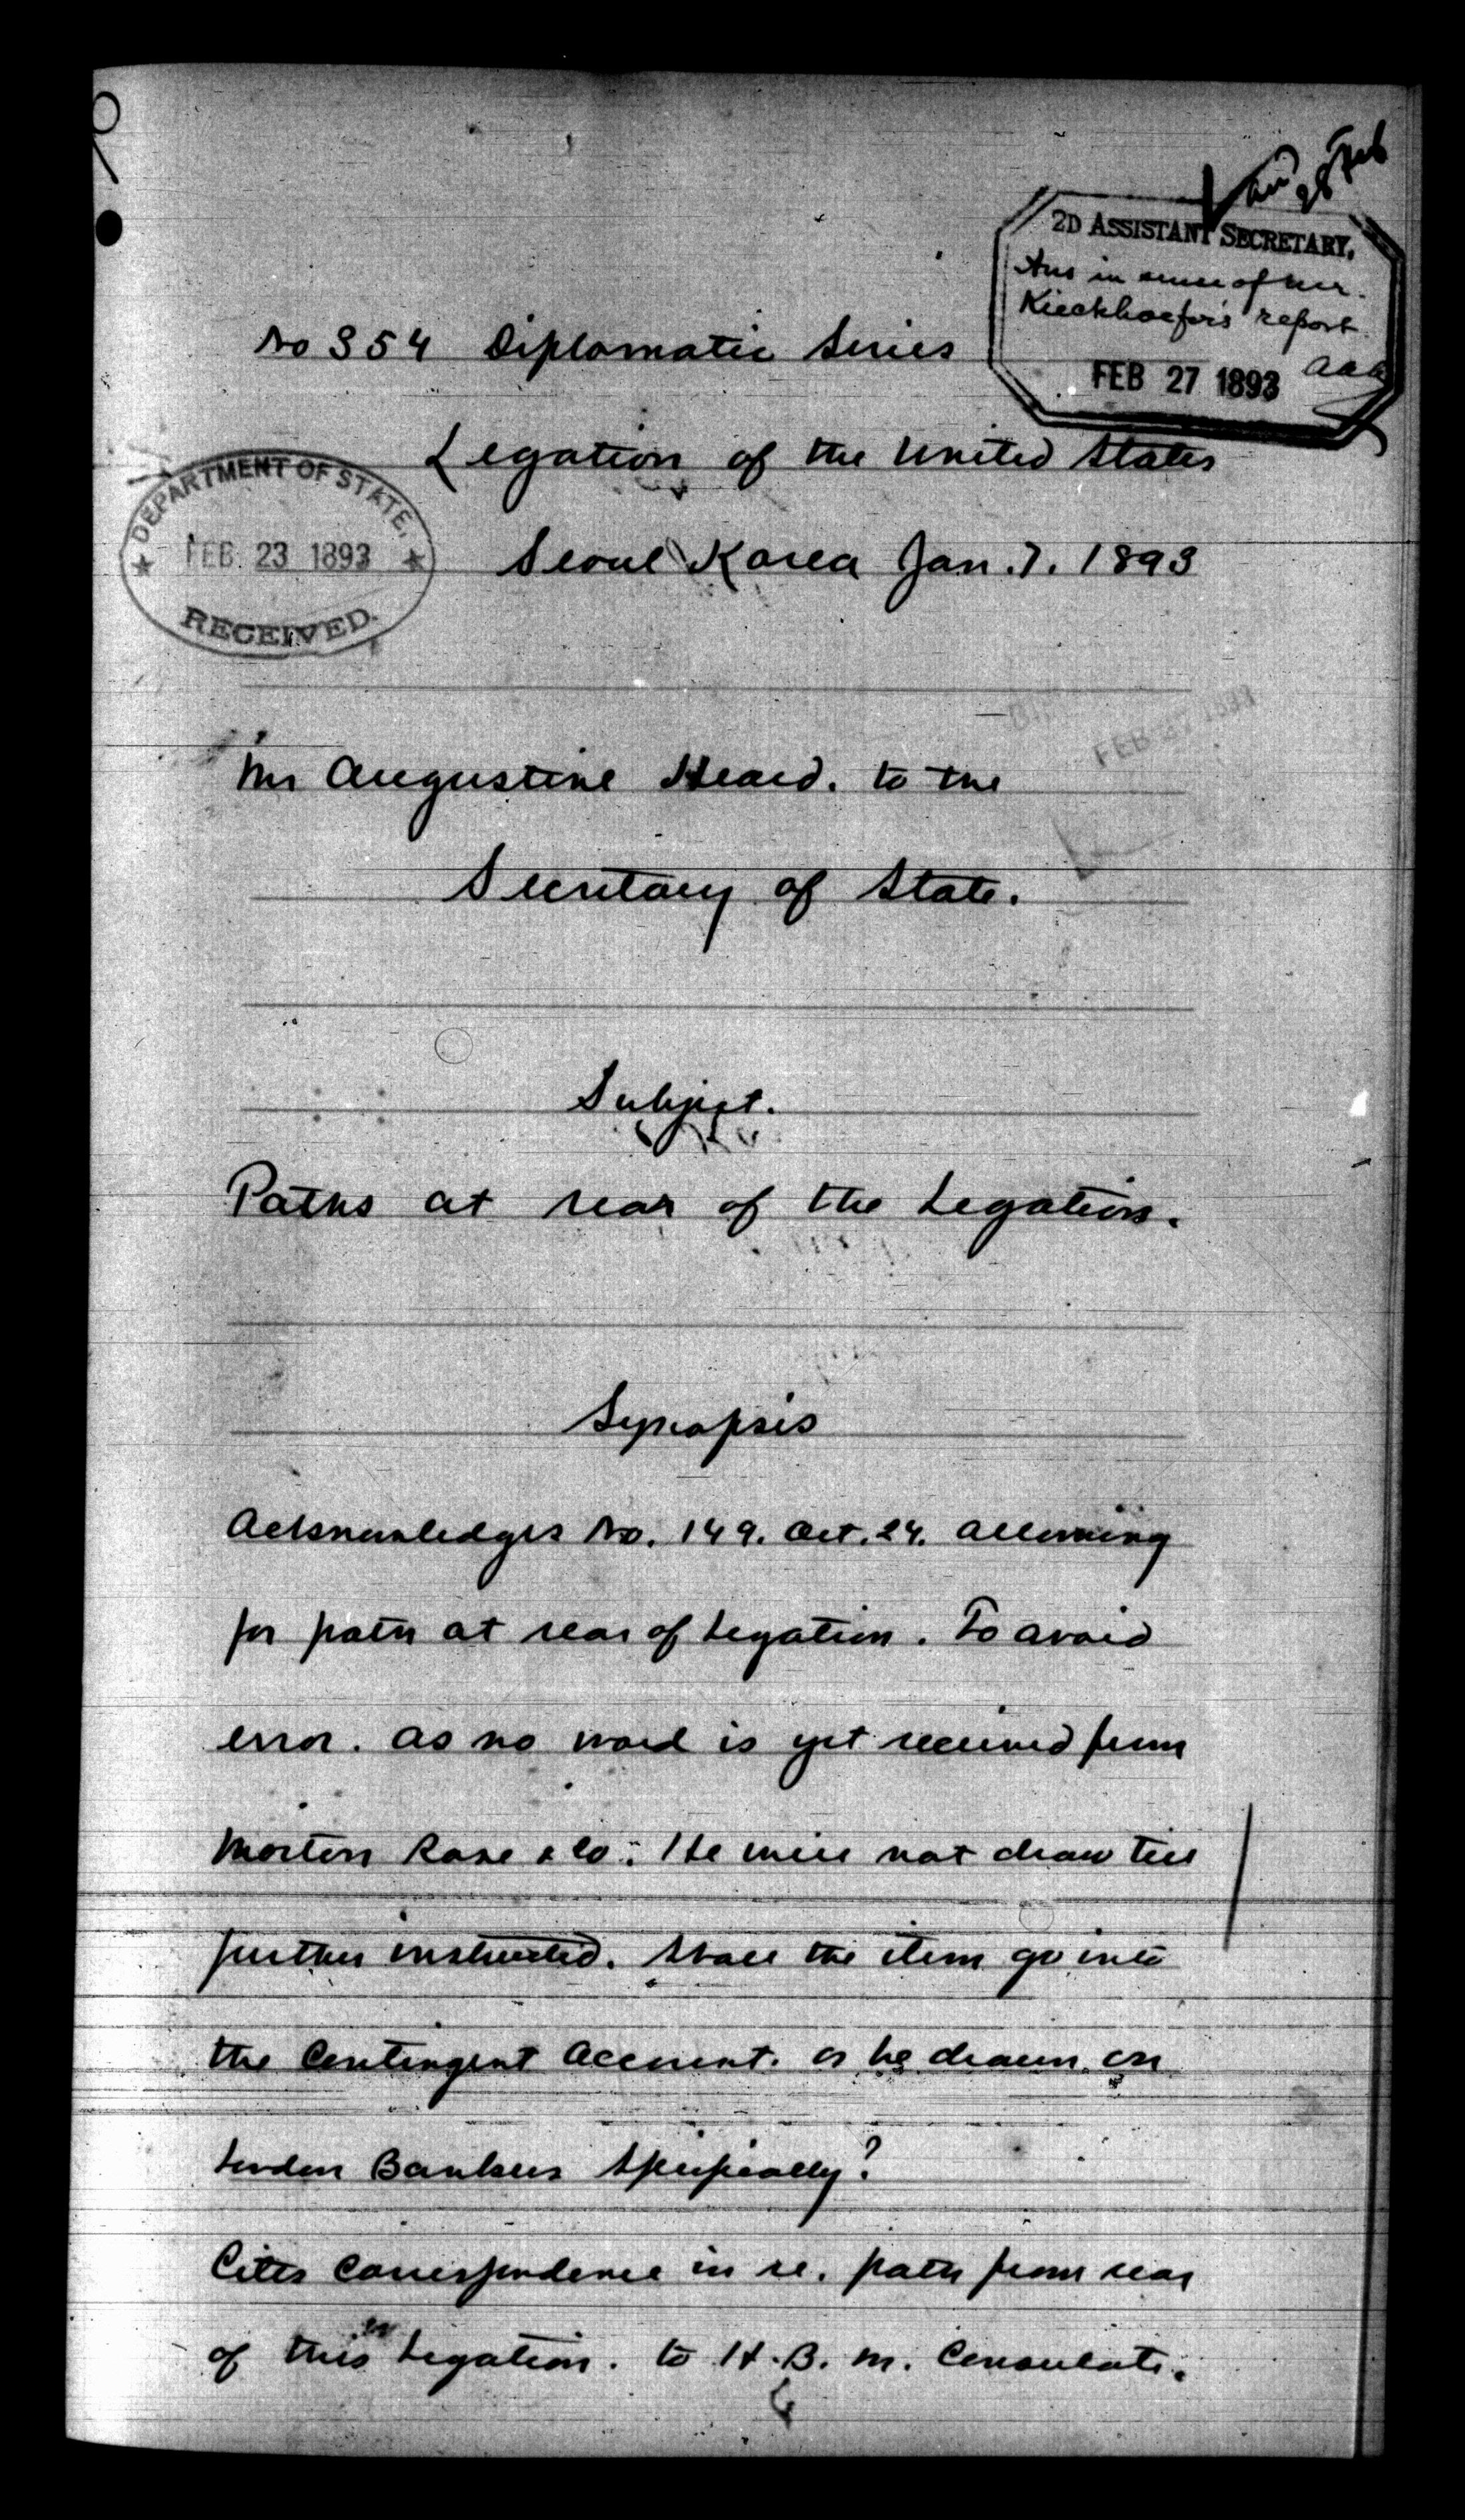 Ans 28 Feb
2D ASSISTANT SECRETARY,
Ans in sense of Mr.
Kieckhoefer's report.
AAA
FEB 27 1893
No 354 Diplomatic Series
Legation of the United States
DEPARTMENT OF STATE,
FEB. 23 1893
RECEIVED.
Seoul Korea Jan. 7. 1893
FEB 27 1893
Mr Augustine Heard. to the
Secretary of State.
Subject.
Paths at rear of the Legation.
Synopsis
Acknowledges No. 149. Oct. 24. allowing
for path at rear of Legation. To avoid
error. as no word is yet received from
Morton Rose & Co: He will not draw till
further instructed. Shall the item go into
the Contingent Account. or be drawn on
London Bankers Specifically?
Cites Correspondence in re. path from rear
of this Legation. to H. B. M. Consulate.